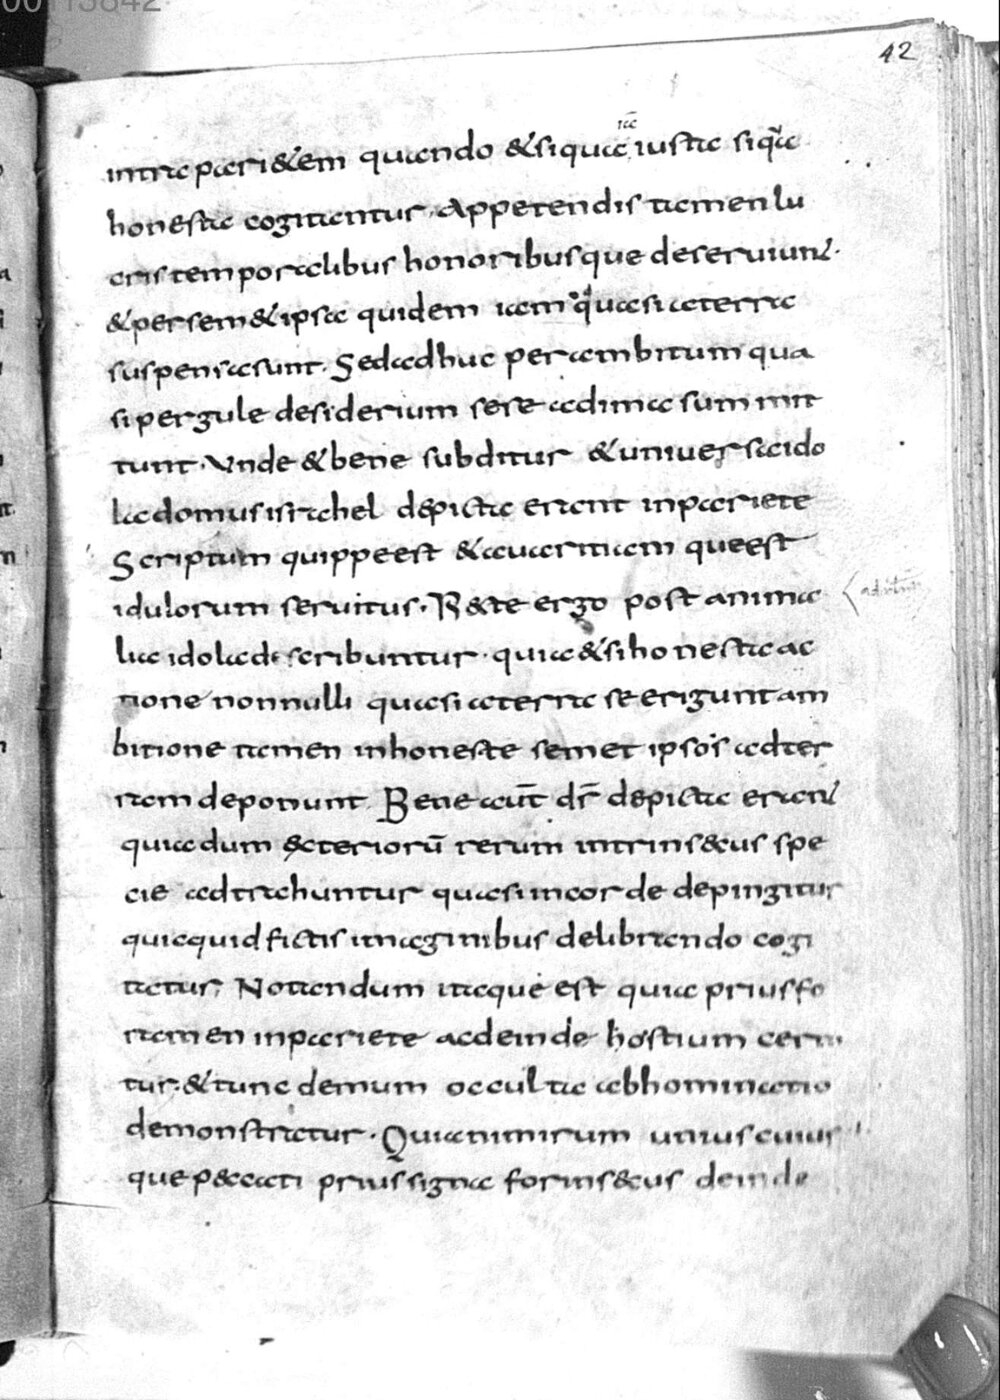 00113842
42
intra pari&em quando &si quae iusta si q̄a
ia
honesta cogitantur. Appetendis tamen lu
cris temporalibus honoribusque deseruiunt.
& per sem&ipsa quidem iam quasi aterra
suspensa sunt. Sed adhuc per ambitum qua
si per gule desiderium sese ad ima summit
tunt. Vnde & bene subditur & uniuersa ido
la domus israhel depicta erant in pariete
Scriptum quippe est & auaritiam que est
idulorum seruitus. R&te ergo post anima
lia idola describuntur. quia & si honesta ac
tione nonnulli quasi aterra se erigunt am
bitione tamen inhoneste semet ipsos ad ter
ram deponunt. Bene aūt dr̄ depicta erant
quia dum &cteriorū rerum intrins&us spe
cie adtrahuntur quasi in corde depingitur
quicquid fictis imaginibus delibrando cogi
tatur, Notandum itaque est quia prius fo
ramen in pariete ac deinde hostium cerni
tur. & tunc demum occulta abhominatio
demonstratur. Quia nimirum unius cuius
que p&cati prius signa forins&us deinde